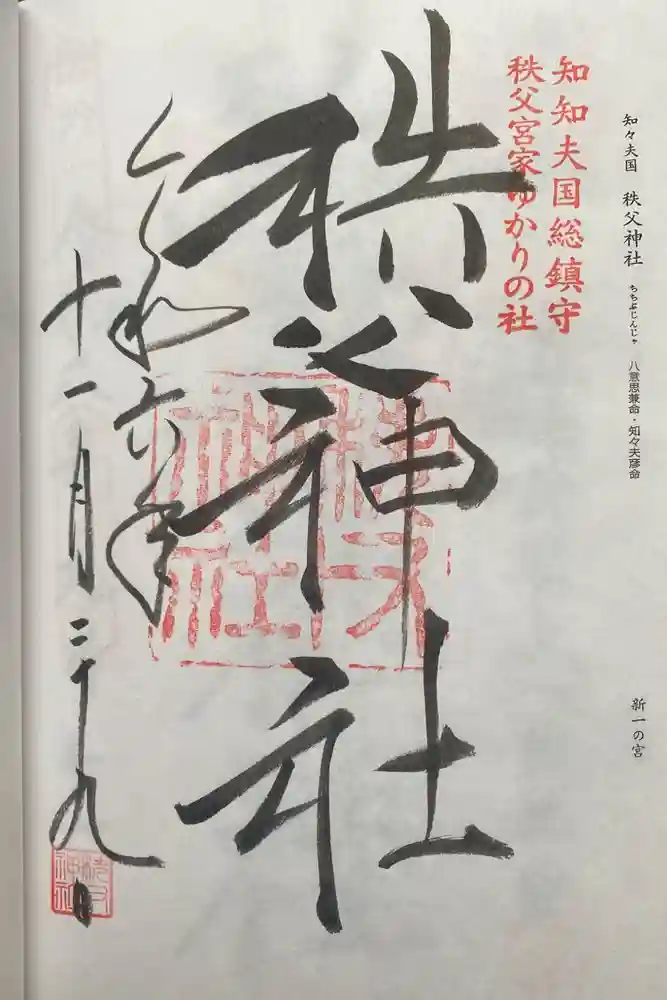 知々夫国 秩父神社 ちちぶじんじゃ 八意思兼命・知々夫彦命
新一の宮
知知夫国総鎮守
秩父宮家ゆかりの社
秩父神社
秩父神社
令和六年
十一月二十九日
秩父神社